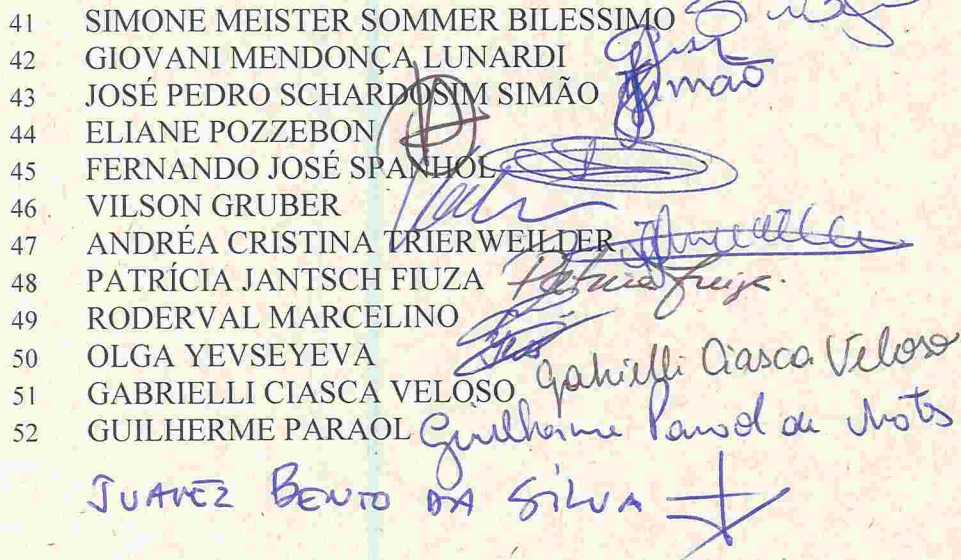 41 SIMONE MEISTER SOMMER BILESSIMO
42 GIOVANI MENDONÇA LUNARDI
43 JOSÉ PEDRO SCHARDOSIM SIMÃO Simão
44 ELIANE POZZEBON
45 FERNANDO JOSÉ SPANHOL
46 VILSON GRUBER
47 ANDRÉA CRISTINA TRIERWEILDER
48 PATRÍCIA JANTSCH FIUZA Patricia Fiuza.
49 RODERVAL MARCELINO
50 OLGA YEVSEYEVA
51 GABRIELLI CIASCA VELOSO Gabrielli Ciasca Veloso
52 GUILHERME PARAOL Guilherme Paraol de Matos
JUAREZ BENTO DA SILVA